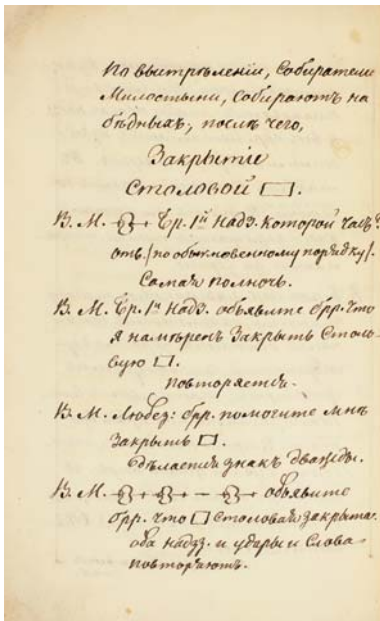 По выстрѣленіи, Собиратели
Милостыни, собираютъ на
бѣдныхъ, послѣ чего,
Закрытіе
Столовой ▭.
В. М. Бр. 1й Надз. которой часъ?
отв. (по обыкновенному порядку).
Самая полночь.
В. М. Бр. 1й Надз. объявите брр. что
я намѣренъ Закрыть Столо-
вую ▭.
повторяется.
В. М. Любез: брр. помогите мнѣ
Закрыть ▭.
дѣлается знакъ дважды.
В. М. — объявите
брр. что ▭ Столовая закрыта.
оба надзз. и удары и Слова
повторяютъ.